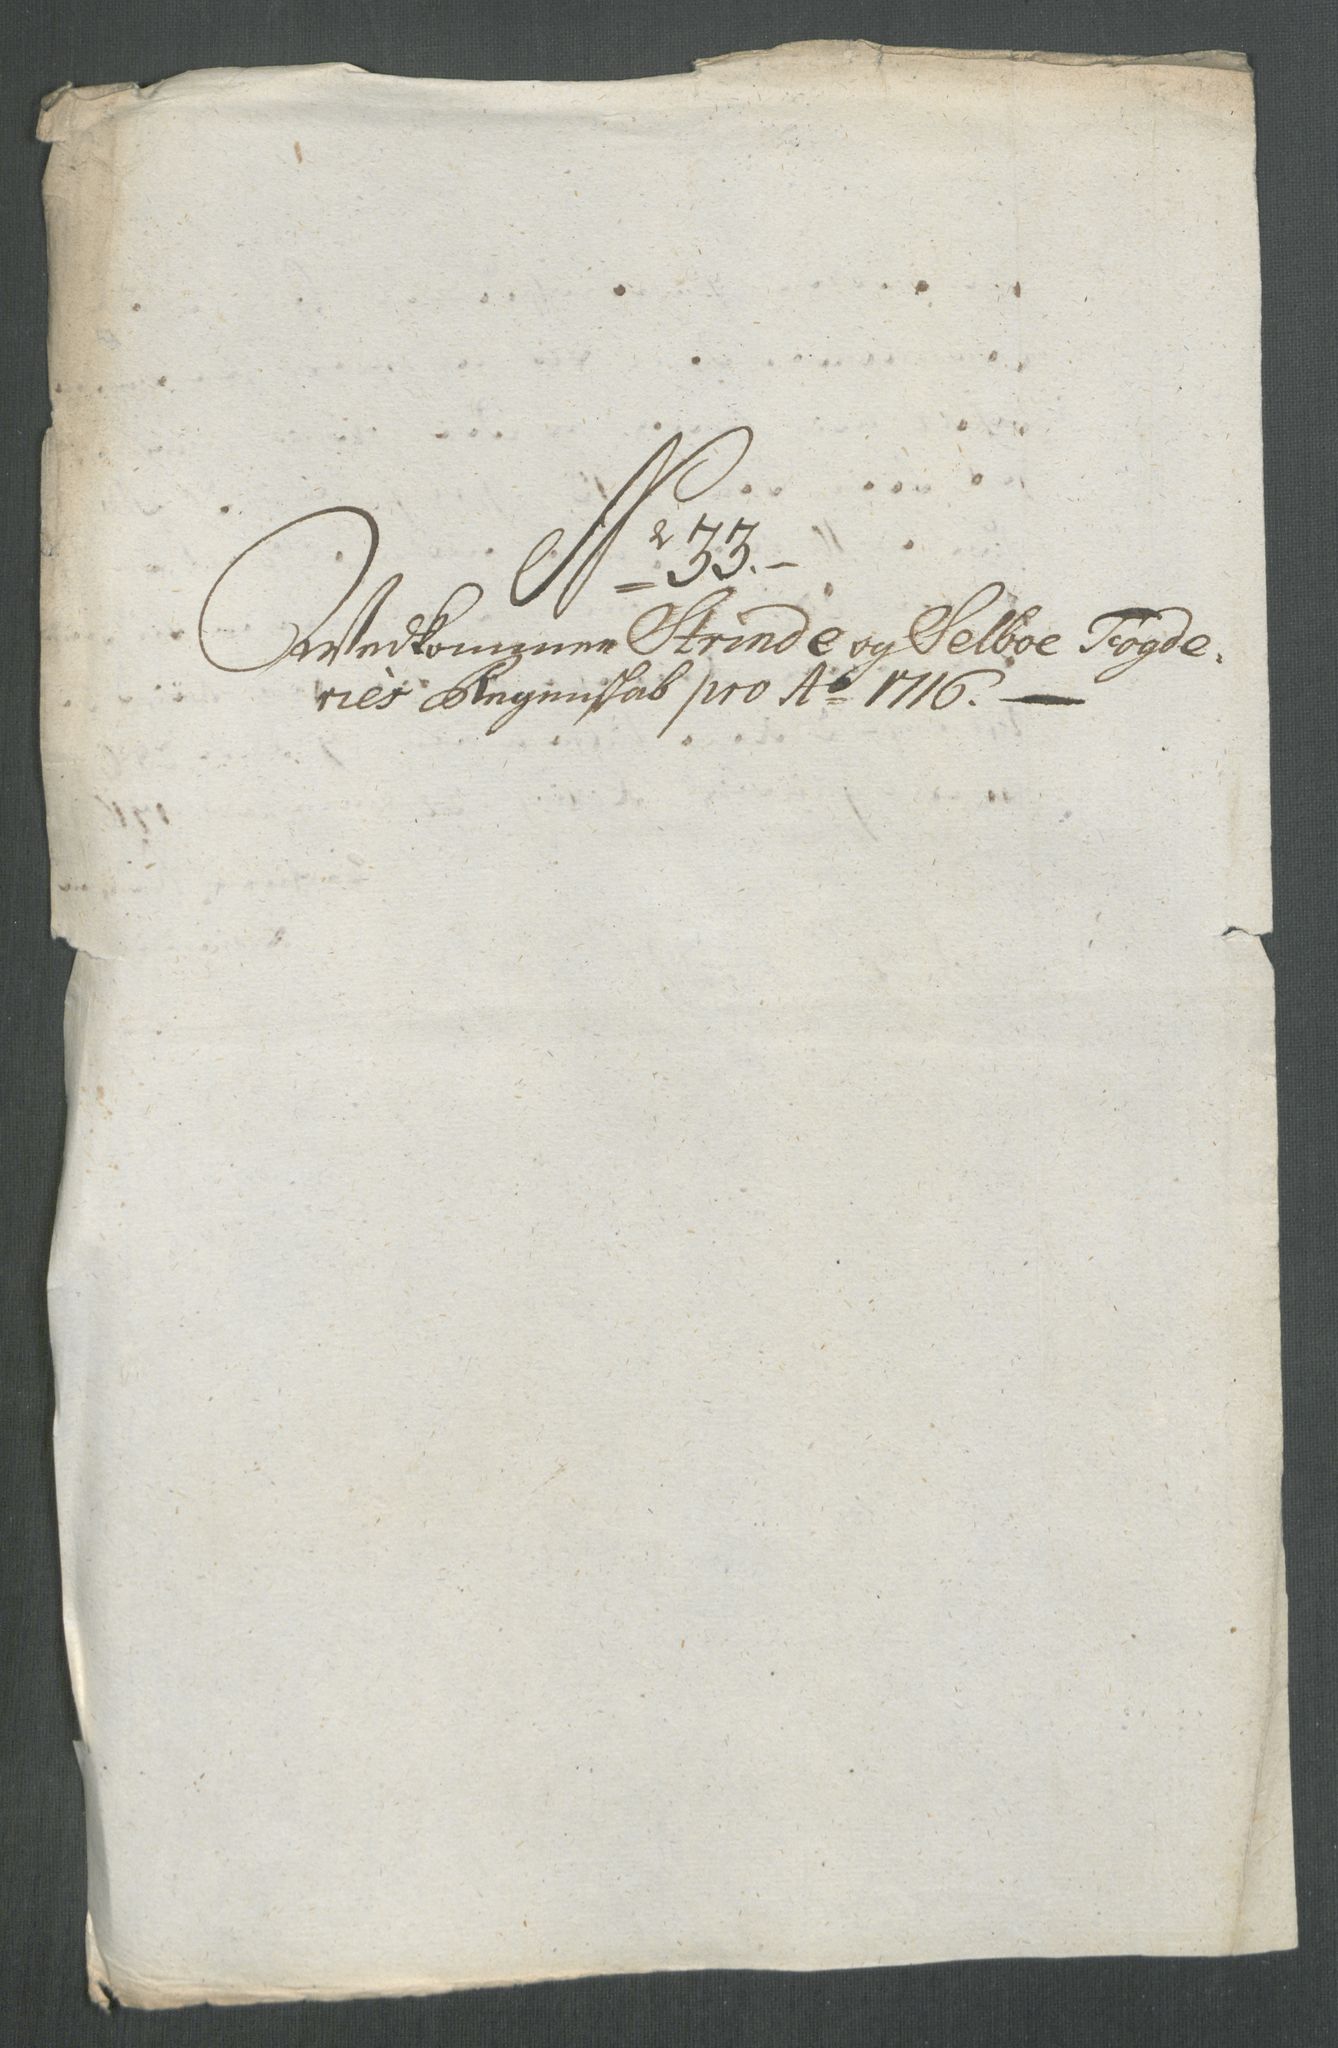 No 33.-
Vedkommer Strinde og Selboe Fogde-
ries Regenskab pro Ao 1716. —